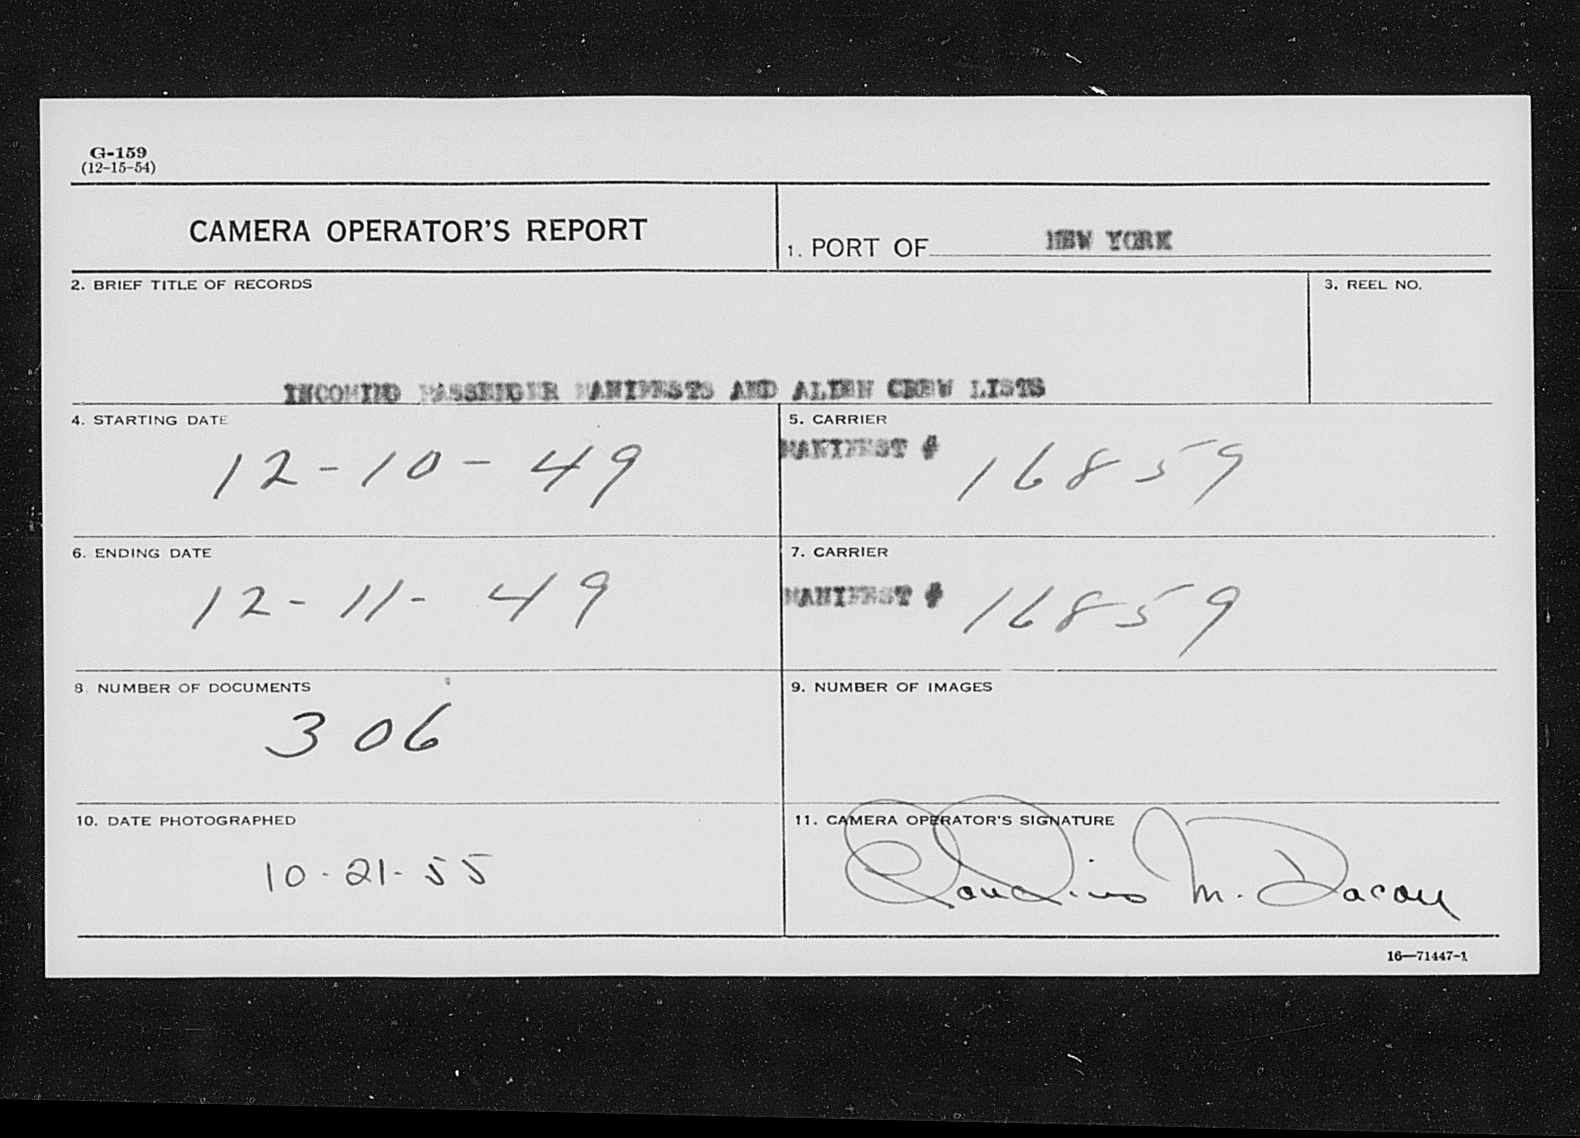 G-159
(12-15-54)
CAMERA OPERATOR'S REPORT
1. PORT OF NEW YORK
2. BRIEF TITLE OF RECORDS
3. REEL NO.
INCOMING PASSENGER MANIFESTS AND ALIEN CREW LISTS
4. STARTING DATE
12-10-49
5. CARRIER
MANIFEST # 16859
6. ENDING DATE
12-11-49
7. CARRIER
MANIFEST # 16859
8. NUMBER OF DOCUMENTS
306
9. NUMBER OF IMAGES
10. DATE PHOTOGRAPHED
10-21-55
11. CAMERA OPERATOR'S SIGNATURE
Claudius M. Dacon
16—71447-1